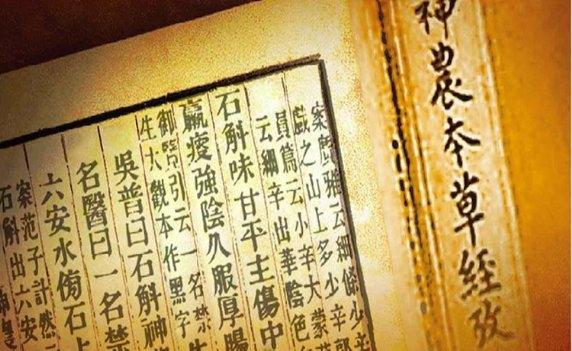 神農本草經攷
案廣雅云細條少辛
戲之山上多少辛郭
員篇云小辛大蒙
云細辛出華陰色
石斛味甘平主傷中
羸瘦強陰久服厚腸
御覽引云一名禁
生大觀本作黑字
吳普曰石斛神
名醫曰一名禁
六安水傍石上
案范子計然
石斛出六安